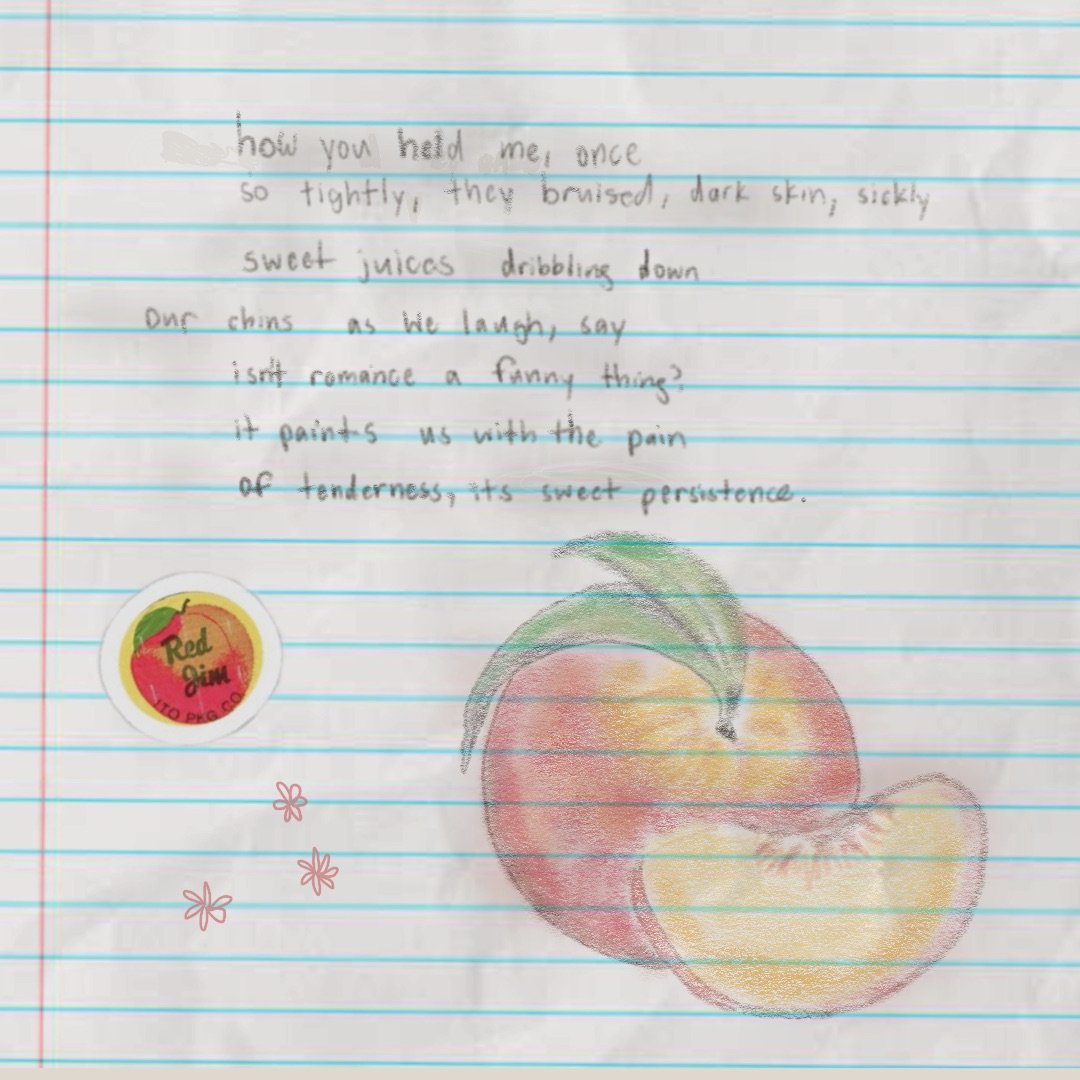 how you held me, once
so tightly, they bruised, dark skin, sickly
sweet juices dribbling down
our chins as we laugh, say
isn't romance a funny thing?
it paints us with the pain
of tenderness, its sweet persistence.
Red
Jim
ITO PKG CO.